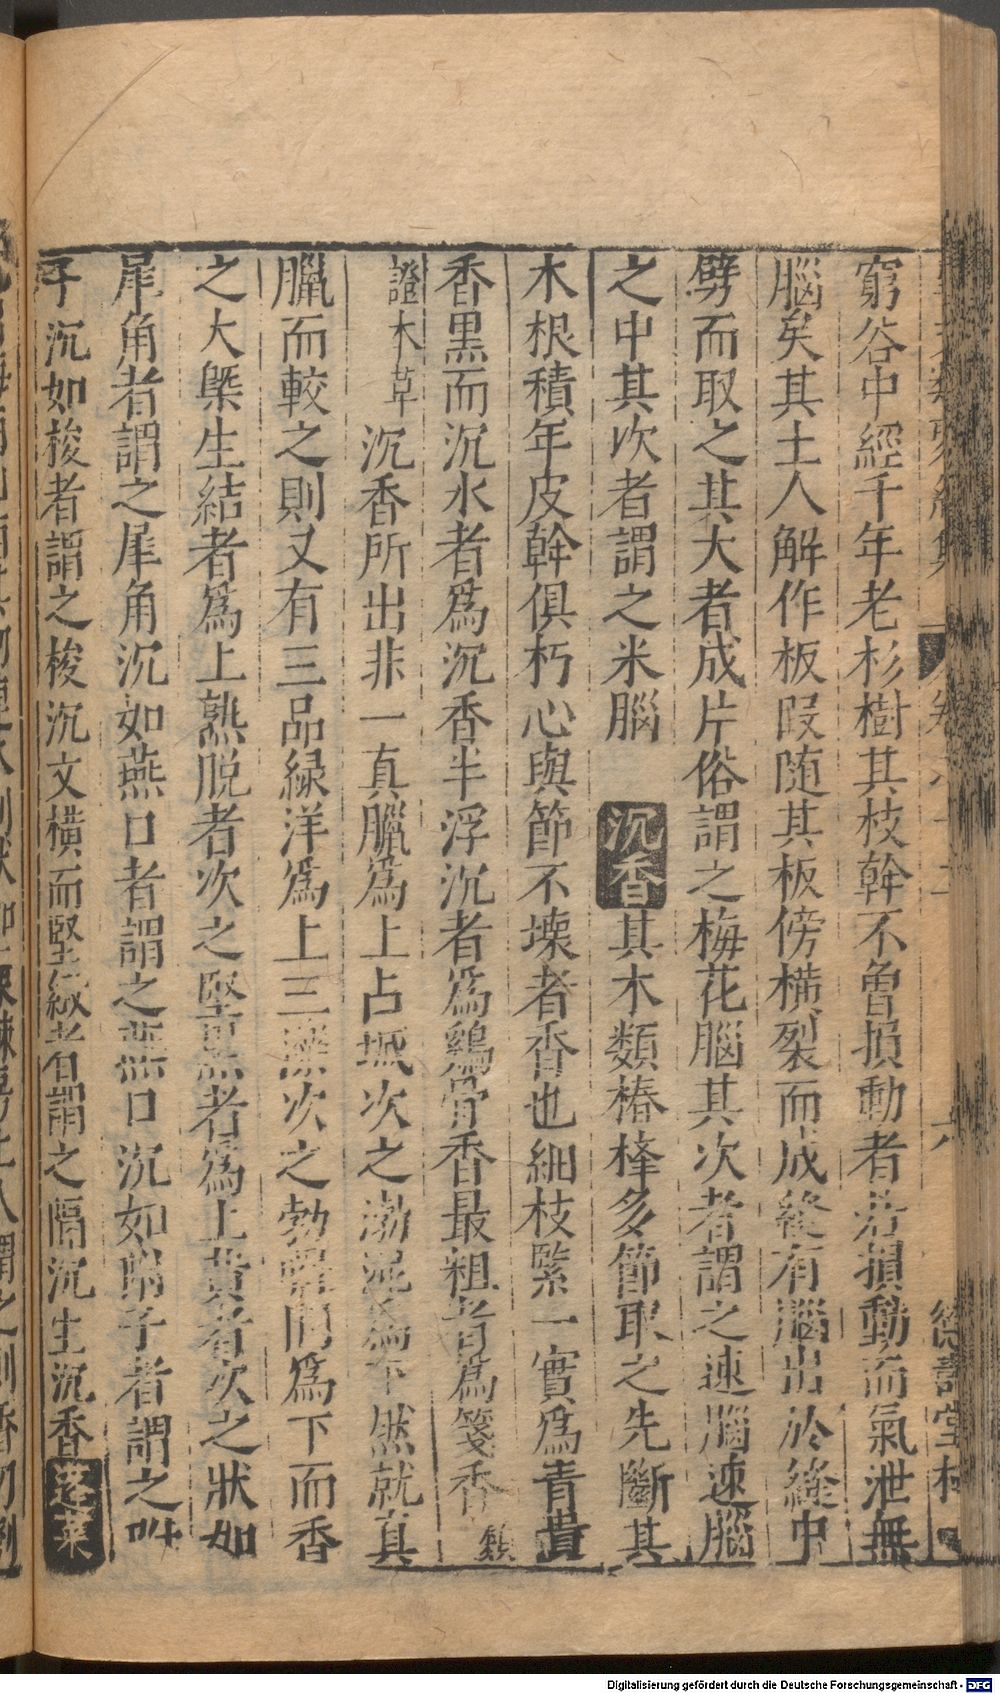 窮谷中經千年老杉樹其枝幹不曾損動者若損動而氣泄無
腦矣其土人解作板叚随其板傍横裂而成縫有腦出於縫中
劈而取之其大者成片俗謂之梅花腦其次者謂之速腦速腦
之中其次者謂之米腦 沉香其木類椿檡多節取之先斷其
木根積年皮幹俱朽心與節不壞者香也細枝緊一實爲青黄
香黑而沉水者爲沉香半浮沉者爲鷄骨香最粗者爲箋香類
證本草 沉香所出非一真臘爲上占城次之渤泥爲下然就真
臘而較之則又有三品緑洋爲上三濼次之勃羅間爲下而香
之大槩生結者爲上熟脱者次之堅黒者爲上黄者次之狀如
犀角者謂之犀角沉如燕口者謂之燕口沉如附子者謂之附
子沉如梭者謂之梭沉文横而堅緻者謂之隔沉生沉香蓬萊
Digitalisierung gefördert durch die Deutsche Forschungsgemeinschaft - DFG